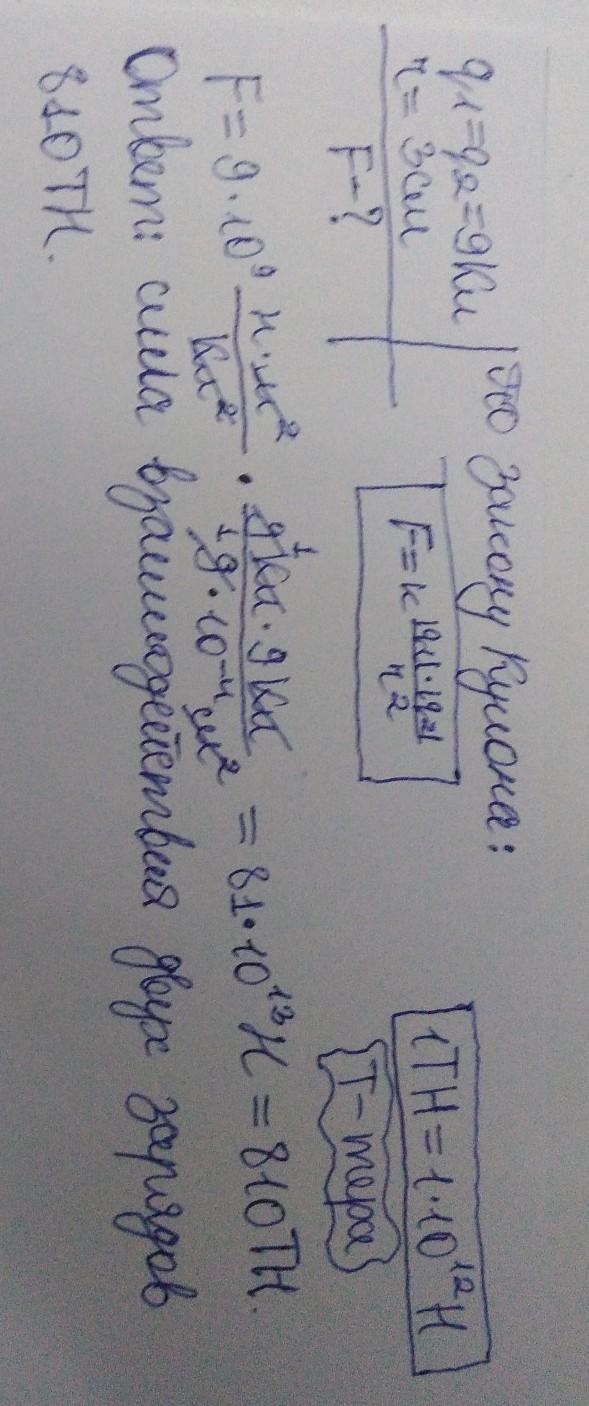 q1=q2=9Кл
r=3см
F-?
По закону Кулона:
F=k |q1|·|q2| / r2
1ТН=1·10¹²Н
Т-тера
F=9·10⁹ Н·м²/Кл² · 9Кл·9Кл / 9·10⁻⁴м² = 81·10¹³Н = 810ТН.
Ответ: сила взаимодействия двух зарядов
810ТН.